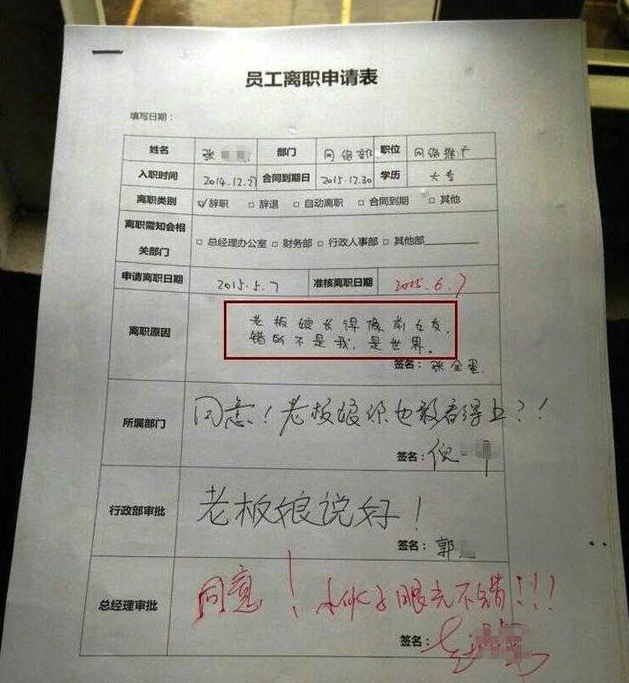 员工离职申请表
填写日期：
姓名 张 部门 网络部 职位 网络推广
入职时间 2014.12.27 合同到期日 2015.12.30 学历 大专
离职类别 ☑辞职 □辞退 □自动离职 □合同到期 □其他
离职需知会相关部门 □总经理办公室 □财务部 □行政人事部 □其他部
申请离职日期 2015.5.7 准核离职日期 2015.6.7
离职原因
老板娘长得像前女友，
错的不是我，是世界。
签名：张全蛋
所属部门 同意！老板娘你也敢看得上？！
签名：倪
行政部审批 老板娘说好！
签名：郭
总经理审批 同意！小伙子眼光不错!!!
签名：